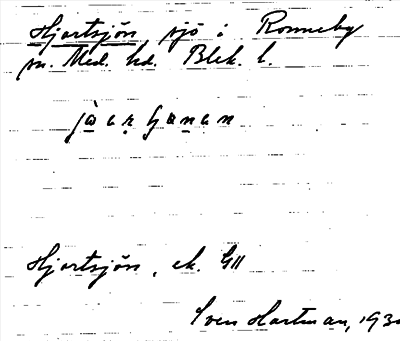 Hjortsjön, sjö i Ronneby
sn. Med. hd. Blek. l.
Hjortsjön, ek. G11
Sven Hartman, 193